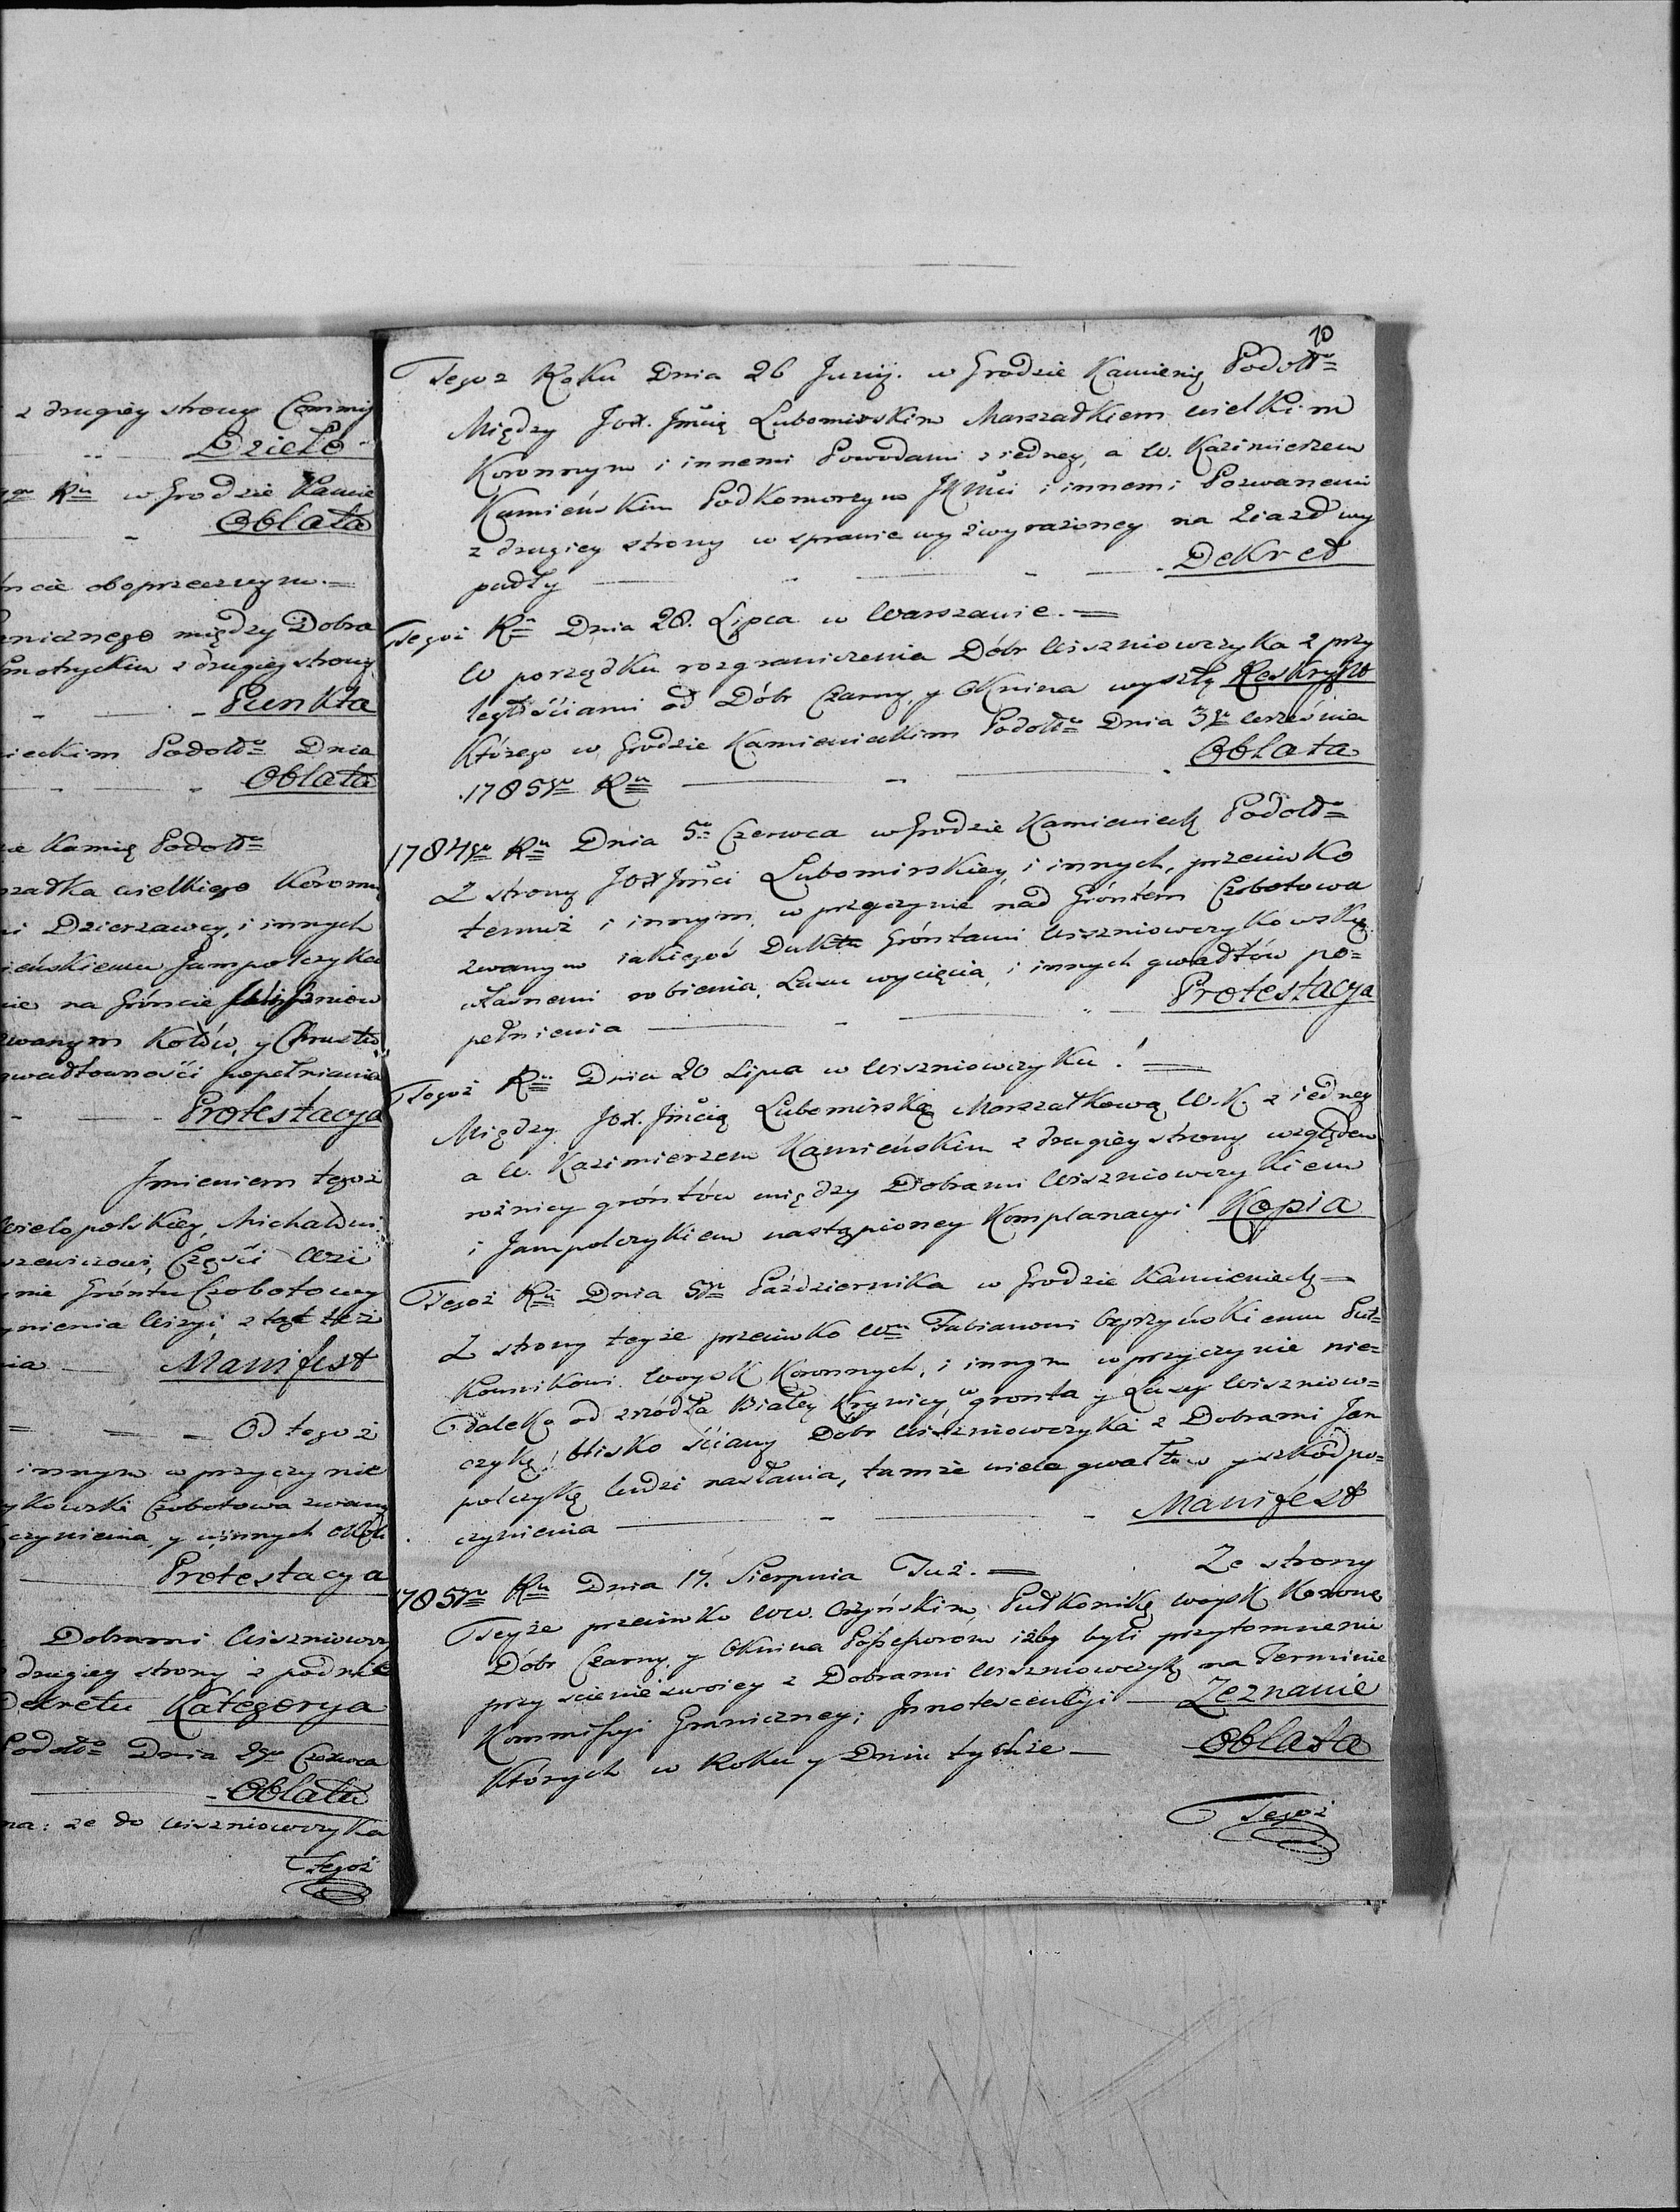 z drugiey strony Commis
Dzieło
Ru w Grodzie Kamie
Oblata
ncie oboprzecznym.
nicznego między Dobra
motryckim z drugiey strony
Punkta
ieckim Podolo Dnia
Oblata
ie Kamię Podolo
szadka wielkiego Koronn
i Dzierzawcy, i innych
ieńskiemu Jampolczyka
ie na Gróncie Wiszniow
zwanym Kotów, y Chrusto
gwadtowności popełniania
Protestacya
Jmieniem tegoż
Wielopolskiey, Michałowi
szewiczowi, Części Wsi
nie Gróntu Czobotowy
ynienia Wizyi, z tąt też
ia Manifest
Od tegoż
innym w przyczynie
ykowski Czobotowa zwany
czynienia, y innych
Protestacya
Dobrami Wiszniowcz
drugiey strony z
Dekretu Kategorya
Podolo Dnia 2go Czerwca
Oblata
na: ze do Wiszniowczyka
Tegoż
10
Tegoz Roku Dnia 26 Junij. w Grodzie Kamienię Podolo
Między JOX. Jmścią Lubomirskim Marszadkiem Wielkim
Koronnym i innemi Powodami z iedney, a W. Kazimierzem
Kamieńskim Podkomorzym JKMci i innemi Pozwanemi
z drugiey strony w sprawie wyżwyrażoney na Ziazd wy
padły Dekret
Tegoż Ru Dnia 28. Lipca w Warszawie.
W porządku rozgraniczenia Dóbr Wiszniowczyka z przy
ległościami od Dóbr Czarny, y Oknina wyszły Reskrypt
Którego w Grodzie Kamienieckim Podolo Dnia 3go Września
1785go Ru Oblata
1784go Ru Dnia 5o Czerwca w Grodzie Kamienieck Podolo
Z strony JOX Jmści Lubomirskiey, i innych, przeciwko
temuż i innym, w przyczynie nad Gróntem Czobotowa
zwanym iakiegoś Dukta Gróntami Wiszniowczykowskię
własnemi robienia, Lasu wycięcia, i innych gwadtów po=
pełnienia Protestacya
Tegoż Ru Dnia 20 Lipca w Wiszniowczyku.
Między JOX. Jmścią Lubomirską Marszałkową W.K. z iedney
a W. Kazimierzem Kamieńskim z drugiey strony względem
rożnicy gróntów między Dobrami Wiszniowczykiem
i Jampolczykiem nastąpioney Komplanacyi Kopia
Tegoż Ru Dnia 5go Października w Grodzie Kamienieck
Z strony teyże przeciwko Wmu Fabianowi Put=
kownikowi Woysk Koronnych, i innym w przyczynie nie=
daleko od zródła Białey Krynicy, w gronta y Lasy Wiszniow=
czykę, blisko ściany Dobr Wiszniowczyka z Dobrami Jam
polczykę ludzi nasłania, tamże wiela gwałtów y szkód po=
czynienia Manifest
1785go Ru Dnia 17. Sierpnia Tuż. Ze strony
Teyże przeciwko WW. Pułkownikę woysk Koronę
Dóbr Czarny, y Oknina Possessorom iżby byli przytomnemi
przy scienie swoiey z Dobrami Wiszniowczyk na Terminie
Kommissyi Graniczney; Jnnotescencyi Zeznanie
Których w Roku y Dniu tychże Oblata
Tegoż